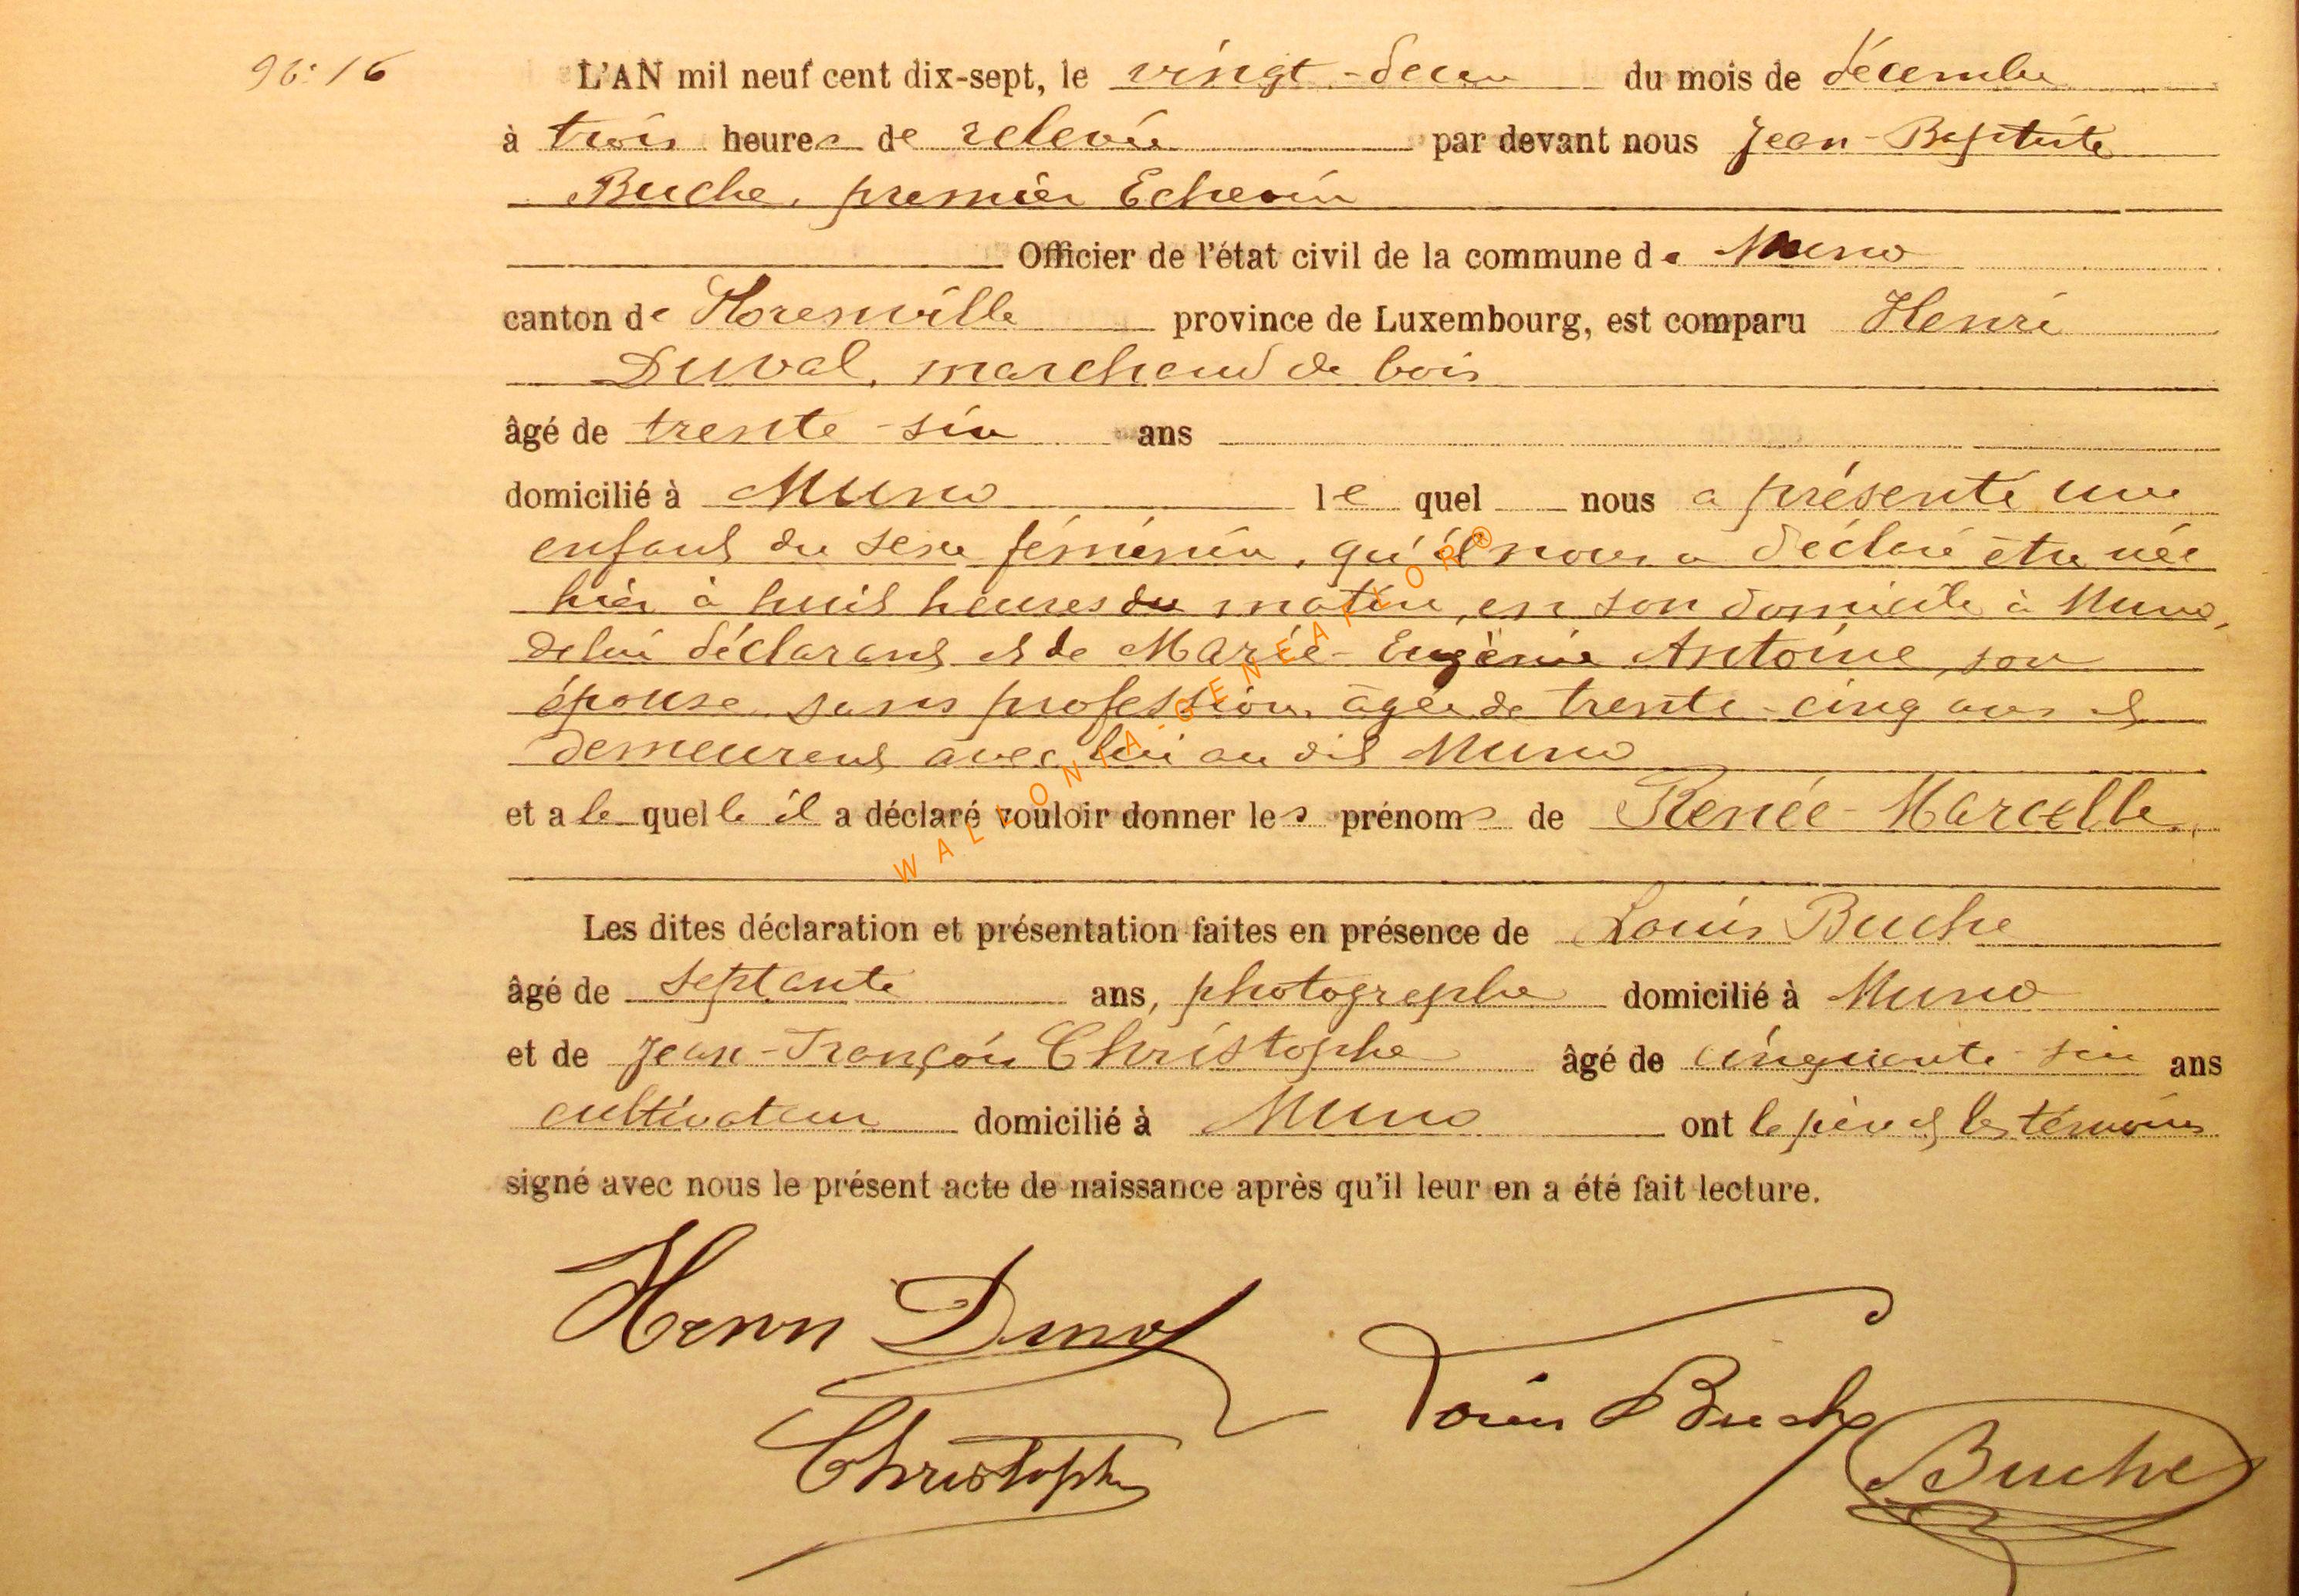 No: 16
L'AN mil neuf cent dix-sept, le vingt-deux du mois de décembre
à trois heures de relevée par devant nous Jean-Baptiste
Buche, premier Echevin
Officier de l'état civil de la commune de Muno
canton de Florenville province de Luxembourg, est comparu Henri
Duval, marchand de bois
âgé de trente-six ans
domicilié à Muno lequel nous a présenté une
enfant du sexe féminin, qu'il nous a déclaré être née
hier à huit heures du matin, en son domicile à Muno,
de lui déclarant et de Marie-Eugènie Antoine, son
épouse, sans profession, âgée de trente-cinq ans et
demeurant avec lui au dit Muno
et a lequelle il a déclaré vouloir donner les prénoms de Renée-Marcelle.
Les dites déclaration et présentation faites en présence de Louis Buche
âgé de septante ans, photographe domicilié à Muno
et de Jean-François Christophe âgé de cinquante-six ans
cultivateur domicilié à Muno ont le père et les témoins
signé avec nous le présent acte de naissance après qu'il leur en a été fait lecture.
Henri Duval
Louis Buche
Christophe
Buche